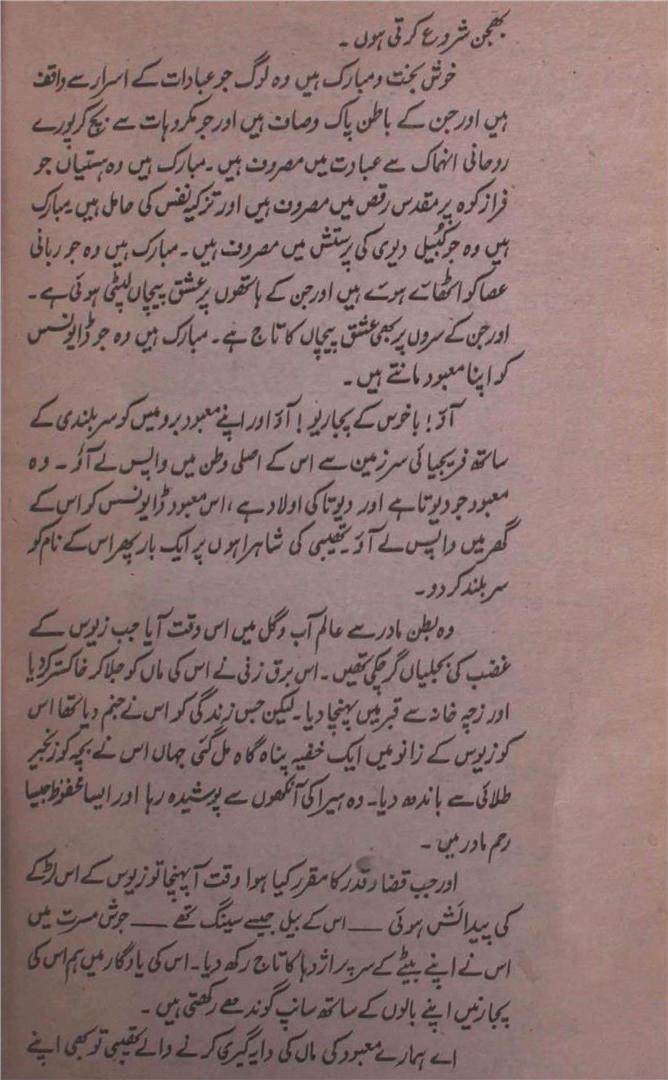 بھجن شروع کرتی ہوں ۔
خوش بخت ومبارک ہیں وہ لوگ جو عبادات کے اسرار سے واقف
ہیں اور جن کے باطن پاک وصاف ہیں اور جو مکروہات سے بچ کر پورے
روحانی انہماک سے عبادت میں مصروف ہیں ۔ مبارک ہیں وہ ہستیاں جو
فراز کوہ پر مقدس رقص میں مصروف ہیں اور تزکیہ نفس کی حامل ہیں ۔ مبارک
ہیں وہ جو کبیل دیوی کی پرستش میں مصروف ہیں ۔ مبارک ہیں وہ جو ربانی
عصا کو اٹھائے ہوئے ہیں اور جن کے ہاتھوں پر عشق پیچاں لپٹی ہوئی ہے ۔
اور جن کے سروں پر بھی عشق پیچاں کا تاج ہے ۔ مبارک ہیں وہ جو ڈایونسس
کو اپنا معبود مانتے ہیں ۔
آؤ ! باخوس کے پجاریو ! آؤ اور اپنے معبود برومیس کو سربلندی کے
ساتھ فریجیائی سرزمین سے اس کے اصلی وطن میں واپس لے آؤ ۔ وہ
معبود جو دیوتا ہے اور دیوتا کی اولاد ہے ، اس معبود ڈایونسس کو اس کے
گھر میں واپس لے آؤ ۔ تھیبی کی شاہراہوں پر ایک بار پھر اس کے نام کو
سربلند کر دو ۔
وہ بطن مادر سے عالم آب و گل میں اس وقت آیا جب زیوس کے
غضب کی بجلیاں گر چکی تھیں ۔ اس برق زنی نے اس کی ماں کو جلا کر خاکستر کر دیا
اور زچہ خانہ سے قبر میں پہنچا دیا ۔ لیکن جس زندگی کو اس نے جنم دیا تھا اس
کو زیوس کے زانو میں ایک خفیہ پناہ گاہ مل گئی جہاں اس نے بچہ کو زنجیر
طلائی سے باندھ دیا ۔ وہ ہیرا کی آنکھوں سے پوشیدہ رہا اور ایسا محفوظ جیسا
رحم مادر میں ۔
اور جب قضا و قدر کا مقرر کیا ہوا وقت آ پہنچا تو زیوس کے اس لڑکے
کی پیدائش ہوئی ــــ اس کے بیل جیسے سینگ تھے ــــ جوش مسرت میں
اس نے اپنے بیٹے کے سر پر اژدہا کا تاج رکھ دیا ۔ اس کی یادگار میں ہم اس کی
پجارنیں اپنے بالوں کے ساتھ سانپ گوندھے رکھتی ہیں ۔
اے ہمارے معبود کی ماں کی دایہ گیری کرنے والے تھیبی تو بھی اپنے